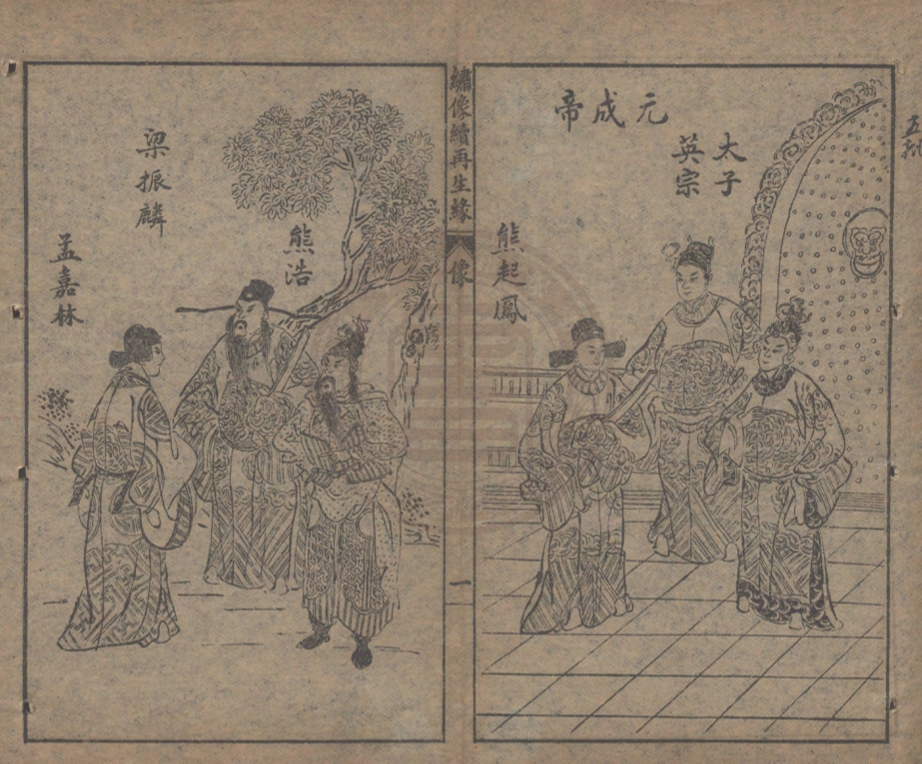 元成帝
太子
英宗
熊起鳳
繡像續再生緣
像
一
熊浩
梁振麟
孟嘉林